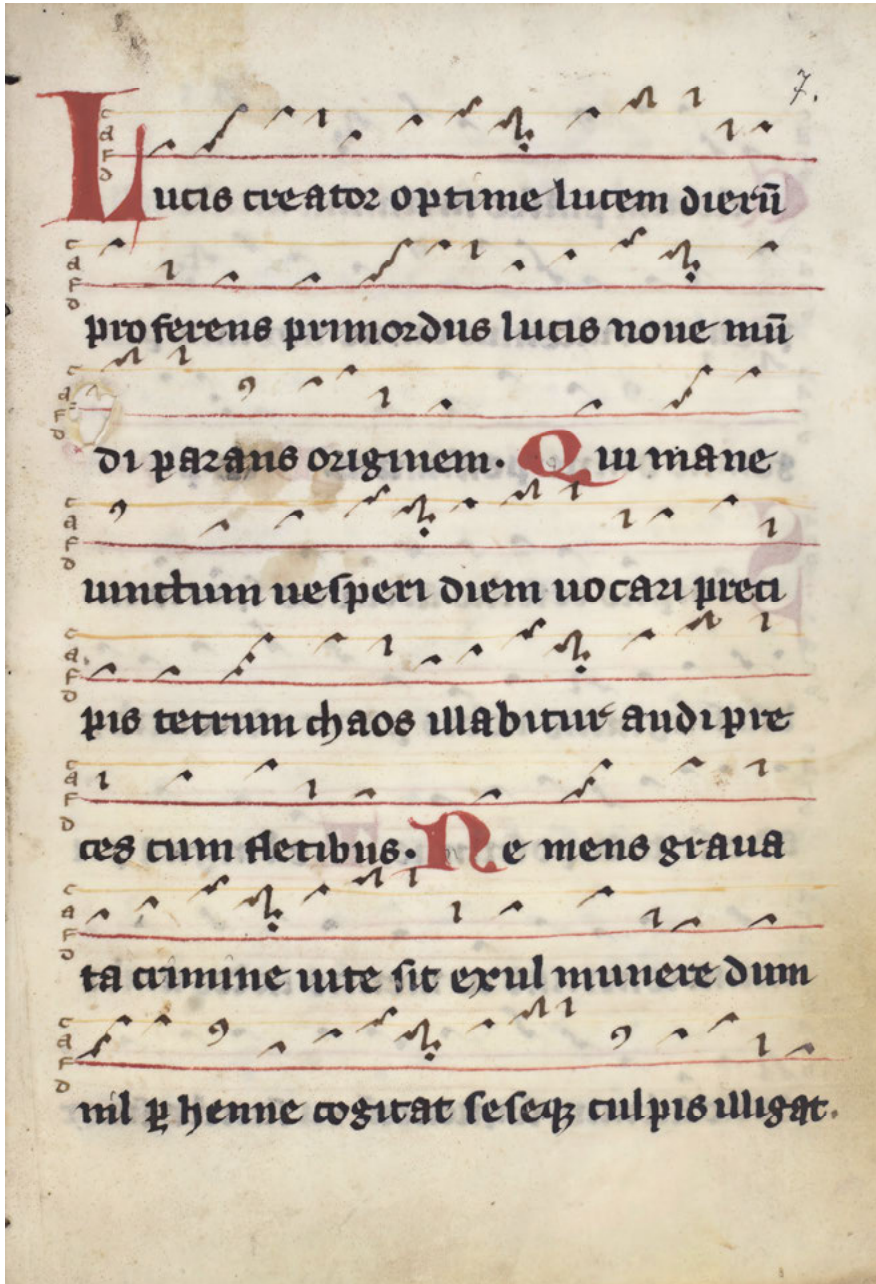 7.
Lucis creator optime lucem dierū
proferens primordiis lucis noue mū
di parans originem. Qui mane
uinctum uesperi diem uocari preci
pis tetrum chaos illabitur audi pre
ces cum fletibus. Ne mens graua
ta crimine uite sit exul munere dum
nil ꝑhenne cogitat seseqꝫ culpis illigat.